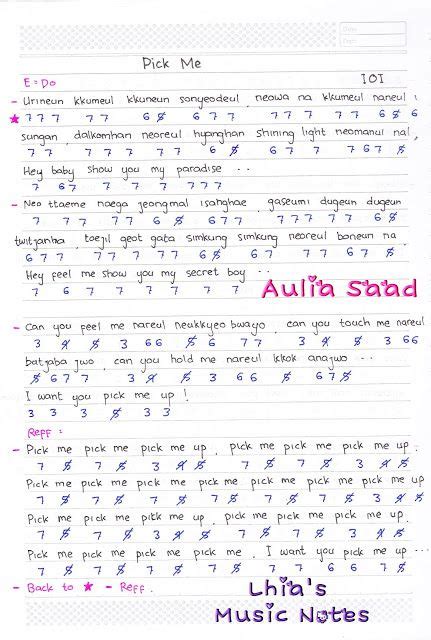 Pick Me
E = Do
IOI
- Urineun kkumeul kkuneun sonyeodeul, neowa na kkumeul naneul
★ 7 7 7 7 7 6 5̸ 6 7 7 7 7 7 7 6 5̸ 6
sungan, dalkomhan neoreul hyanghan shining light neomanul nal,
7 7 7 7 7 7 7 6 5̸ 6 7 7 7 6 7 5̸
Hey baby show you my paradise ...
7 67 7 7 7 777
- Neo ttaeme naega jeongmal isanghae, gaseumi dugeun dugeun
7 77 77 6 5̸ 677 777 77 65̸
twitjanha, toejil geot gata simkung simkung neoreul boneun na
677 77 7 77 65̸ 67 77 67 5̸
Hey feel me show you my secret boy ..
7 6 7 7 7 7 7 7
Aulia Saad
- Can you feel me nareul neukkyeo bwayo, can you touch me nareul
3 4̸ 5̸ 3 66 5̸ 6 77 3 4̸ 5̸ 3 66
batjaba jwo, can you hold me nareul kkok anajwo ..
5̸ 6 7 7 3 4̸ 5̸ 3 66 5̸ 6 7 5̸
I want you pick me up !
3 3 3 5̸ 3 3
Reff :
- Pick me pick me pick me up, pick me pick me pick me up.
7 5̸ 7 5̸ 3 4̸ 5̸ 7 5̸ 7 5̸ 3 4̸ 5̸
Pick me pick me pick me pick me pick me pick me pick me up
7 5̸ 7 5̸ 7 5̸ 7 5̸ 7 5̸ 7 5̸ 3 4̸ 5̸
Pick me pick me pick me up, pick me pick me pick me up.
7 5̸ 7 5̸ 3 4̸ 5̸ 7 5̸ 7 5̸ 3 4̸ 5̸
Pick me pick me pick me pick me, I want you pick me up ...
7 5̸ 7 5̸ 7 5̸ 7 5̸ 7 7 6 6 7 7
- Back to ★ - Reff.
Lhia's
Music Notes